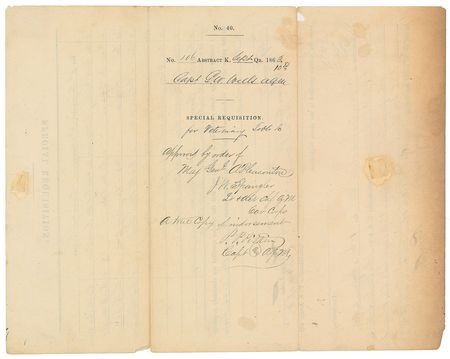 No. 40.
No. 106 Abstract K. Sept. Qr. 1863
Capt Geo
SPECIAL REQUISITION.
for Veterinary Tools &c
Approved by order of
Maj Genl. A Pleasonton
J W Spangler
Lt & Act Cf QM
Cav Corps
A true Copy of indorsement
Capt & AQM,
SPECIAL REQUISITION.